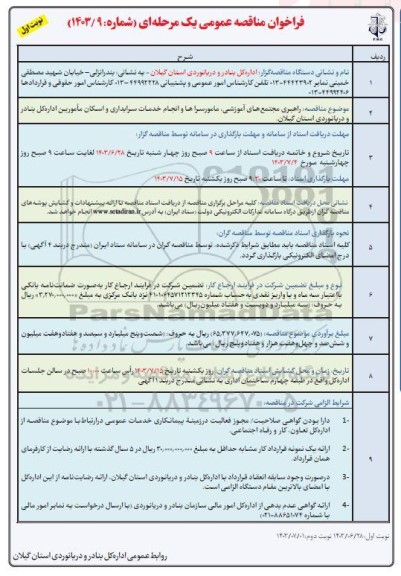 نوبت اول
فراخوان مناقصه عمومی یک مرحله‌ای (شماره: ۱۴۰۳/۹)
ردیف
شرح
۱
نام و نشانی دستگاه مناقصه‌گزار: اداره‌کل بنادر و دریانوردی استان گیلان - به نشانی: بندرانزلی- خیابان شهید مصطفی
خمینی نمابر ۴۴۴۲۳۹۰۲-۰۱۳ تلفن کارشناس امور عمومی و پشتیبانی ۴۴۹۹۲۲۲۸-۰۱۳ کارشناس امور حقوقی و قراردادها
۴۴۹۹۲۴۰۶-۰۱۳
۲
موضوع مناقصه: راهبری مجتمع‌های آموزشی، مامورسرا ها و انجام خدمات سرایداری و اسکان مأمورین اداره‌کل بنادر
و دریانوردی استان گیلان.
۳
مهلت دریافت اسناد از سامانه و مهلت بارگذاری در سامانه توسط مناقصه گزار:
تاریخ شروع و خاتمه دریافت اسناد از ساعت ۹ صبح روز چهار شنبه تاریخ ۱۴۰۳/۶/۲۸ لغایت ساعت ۹ صبح روز
چهارشنبه مورخ ۱۴۰۳/۷/۴
مهلت بارگذاری اسناد: تا ساعت ۹:۳۰ صبح روز یکشنبه تاریخ ۱۴۰۳/۷/۱۵
۴
نشانی محل دریافت اسناد مناقصه: کلیه مراحل برگزاری مناقصه از دریافت اسناد مناقصه تا ارائه پیشنهادات و گشایش پوشه‌های
مناقصه گران از طریق درگاه سامانه تدارکات الکترونیکی دولت (ستاد ایران) به آدرس www.setadiran.ir انجام خواهد شد.
۵
نحوه بارگذاری اسناد مناقصه توسط مناقصه گران:
کلیه اسناد مناقصه باید مطابق شرایط ذکرشده، توسط مناقصه گران در سامانه ستاد ایران (مندرج دربند ۴ آگهی) با
درج امضای الکترونیکی بارگذاری گردد.
۶
نوع و مبلغ تضمین شرکت در فرآیند ارجاع کار: تضمین شرکت در فرآیند ارجاع کار به‌صورت ضمانت‌نامه بانکی
با اعتبار سه ماه و یا واریز نقدی به‌حساب شماره نزد بانک مرکزی به مبلغ ۳،۲۷۰،۰۰۰،۰۰۰ ریال
به حروف: (سه میلیارد و دویست و هفتاد میلیون ریال) می‌باشد.
۷
مبلغ برآوردی موضوع مناقصه: (۶۵،۳۷۷،۶۴۷،۰۷۵) ریال به حروف: (شصت‌وپنج میلیارد و سیصد و هفتادوهفت میلیون
و شش‌صد و چهل‌وهفت هزار و هفتادوپنج ریال) می‌باشد.
۸
تاریخ، زمان و محل گشایش اسناد مناقصه گران: روز یکشنبه تاریخ ۱۴۰۳/۷/۱۵ رأس ساعت ۱۰:۰۰ صبح در سالن جلسات
اداره‌کل واقع در طبقه چهارم ساختمان اداری به نشانی مندرج دربند ۱ آگهی
۹
شرایط الزامی شرکت در مناقصه:
1- دارا بودن گواهی صلاحیت/ مجوز فعالیت درزمینهٔ پیمانکاری خدمات عمومی درارتباط‌با موضوع مناقصه از
اداره‌کل تعاون، کار و رفاه اجتماعی.
2- ارائه یک نمونه قرارداد کار مشابه حداقل به مبلغ ۳۰،۰۰۰،۰۰۰،۰۰۰ ریال در ۵ سال گذشته با ارائه رضایت از کارفرمای
همان قرارداد.
3- درصورت وجود سابقه انعقاد قرارداد با اداره‌کل بنادر و دریانوردی استان گیلان، ارائه رضایت‌نامه از این اداره‌کل
با امضای بالاترین مقام دستگاه الزامی است.
4- ارائه گواهی عدم بدهی از اداره‌کل امور مالی سازمان بنادر و دریانوردی (با ارسال درخواست به نمابر امور مالی
با شماره ۸۸۶۵۱۰۷۴-۰۲۱)
نوبت اول: ۱۴۰۳/۰۶/۲۸ نوبت دوم: ۱۴۰۳/۰۷/۰۱
روابط عمومی اداره‌کل بنادر و دریانوردی استان گیلان
۰۲۱-۸۸۳۴۹۶۷۰